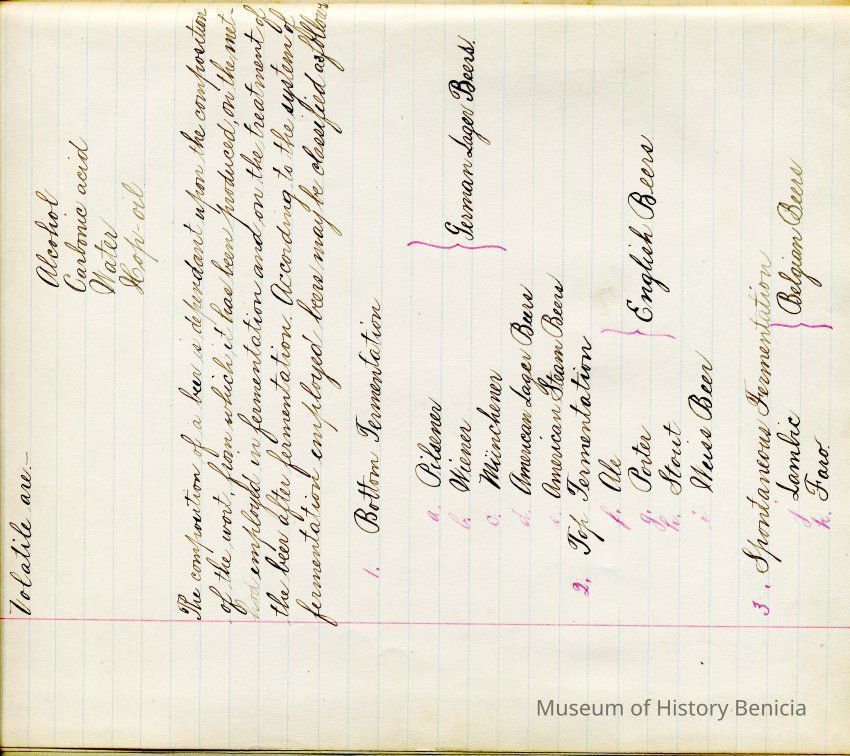 Volatile are:—
Alcohol
Carbonic acid
Water
Hop-oil
The composition of a beer is dependant upon the composition
of the wort, from which it has been produced, on the met-
hod employed in fermentation and on the treatment of
the beer after fermentation. According to the system of
fermentation employed beers may be classified as follows
1. Bottom Fermentation
a. Pilsener
b. Wiener } German Lager Beers.
c. Münchener
d. American Lager Beers
e. American Steam Beers
2. Top Fermentation
f. Ale
g. Porter } English Beers
h. Stout
i. Weiss Beer
3. Spontaneous Fermentation
j. Lambic } Belgian Beers
k. Faro.
Museum of History Benicia